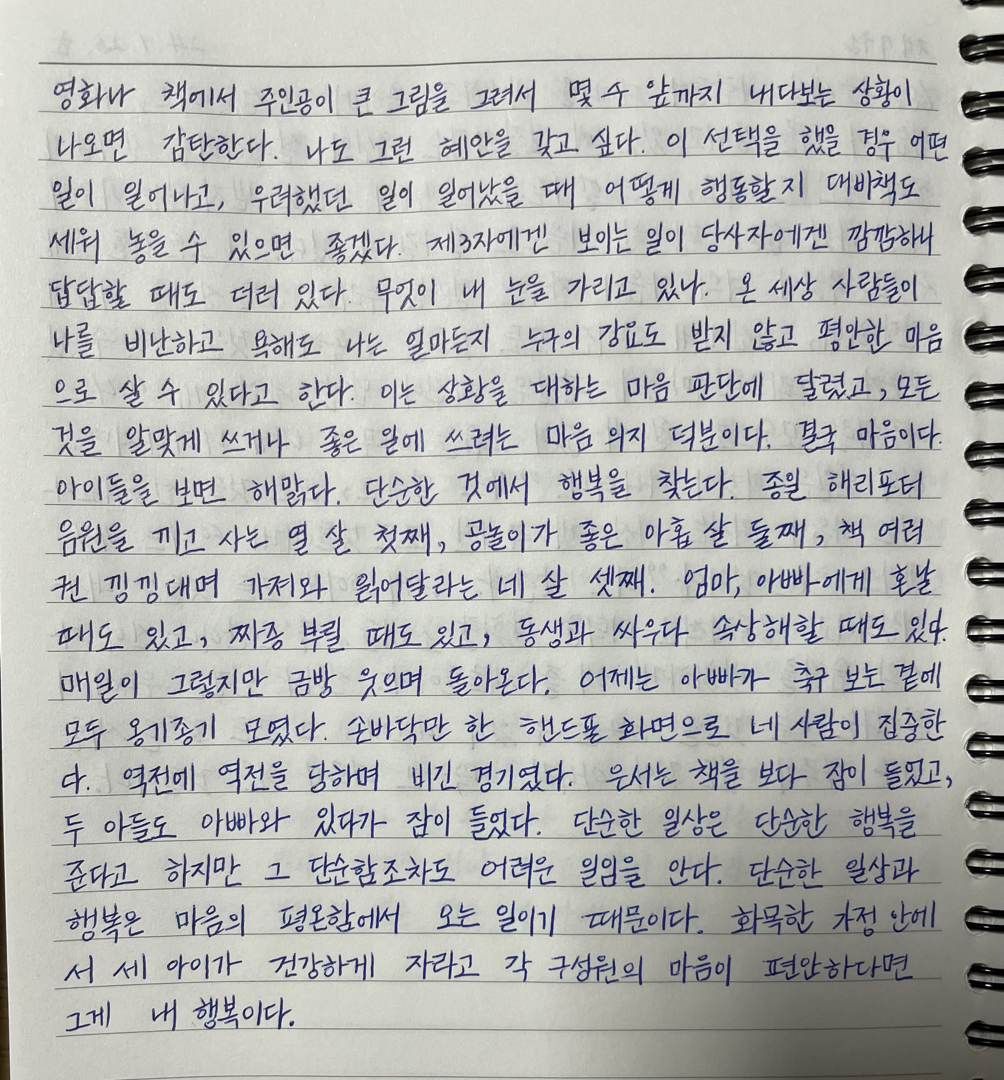 영화나 책에서 주인공이 큰 그림을 그려서 몇 수 앞까지 내다보는 상황이
나오면 감탄한다. 나도 그런 혜안을 갖고 싶다. 이 선택을 했을 경우 어떤
일이 일어나고, 우려했던 일이 일어났을 때 어떻게 행동할지 대비책도
세워 놓을 수 있으면 좋겠다. 제3자에겐 보이는 일이 당사자에겐 깜깜하니
답답할 때도 더러 있다. 무엇이 내 눈을 가리고 있나. 온 세상 사람들이
나를 비난하고 욕해도 나는 얼마든지 누구의 강요도 받지 않고 평안한 마음
으로 살 수 있다고 한다. 이는 상황을 대하는 마음 판단에 달렸고, 모든
것을 알맞게 쓰거나 좋은 일에 쓰려는 마음 의지 덕분이다. 결국 마음이다.
아이들을 보면 해맑다. 단순한 것에서 행복을 찾는다. 종일 해리포터
음원을 끼고 사는 열 살 첫째, 공놀이가 좋은 아홉 살 둘째, 책 여러
권 낑낑대며 가져와 읽어달라는 네 살 셋째. 엄마, 아빠에게 혼날
때도 있고, 짜증 부릴 때도 있고, 동생과 싸우다 속상해할 때도 있다.
매일이 그렇지만 금방 웃으며 돌아온다. 어제는 아빠가 축구 보는 곁에
모두 옹기종기 모였다. 손바닥만 한 핸드폰 화면으로 네 사람이 집중한
다. 역전에 역전을 당하며 비긴 경기였다. 은서는 책을 보다 잠이 들었고,
두 아들도 아빠와 있다가 잠이 들었다. 단순한 일상은 단순한 행복을
준다고 하지만 그 단순함조차도 어려운 일임을 안다. 단순한 일상과
행복은 마음의 평온함에서 오는 일이기 때문이다. 화목한 가정 안에
서 세 아이가 건강하게 자라고 각 구성원의 마음이 편안하다면
그게 내 행복이다.